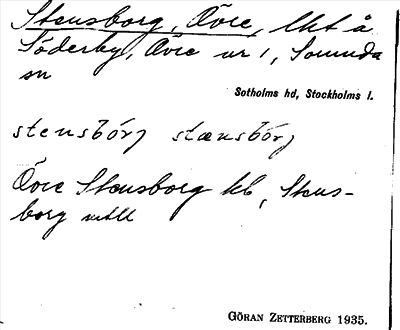 Stensborg, Övre, lht å
Söderby, Övre nr 1, Sorunda
sn
Sotholms hd, Stockholms l.
stensbórj stænsbórj
Övre Stensborg kb, Stens-
borg mtll
GÖRAN ZETTERBERG 1935.